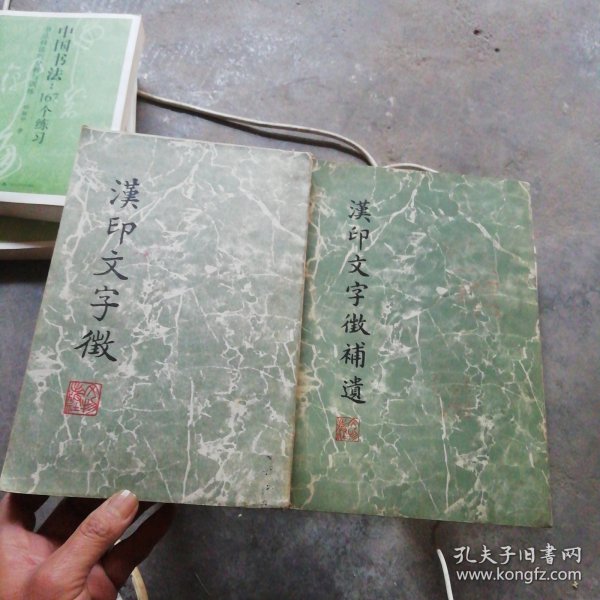 漢印文字徵
漢印文字徵補遺
中国书法：167个练习
孔夫子旧书网
www.kongfz.com